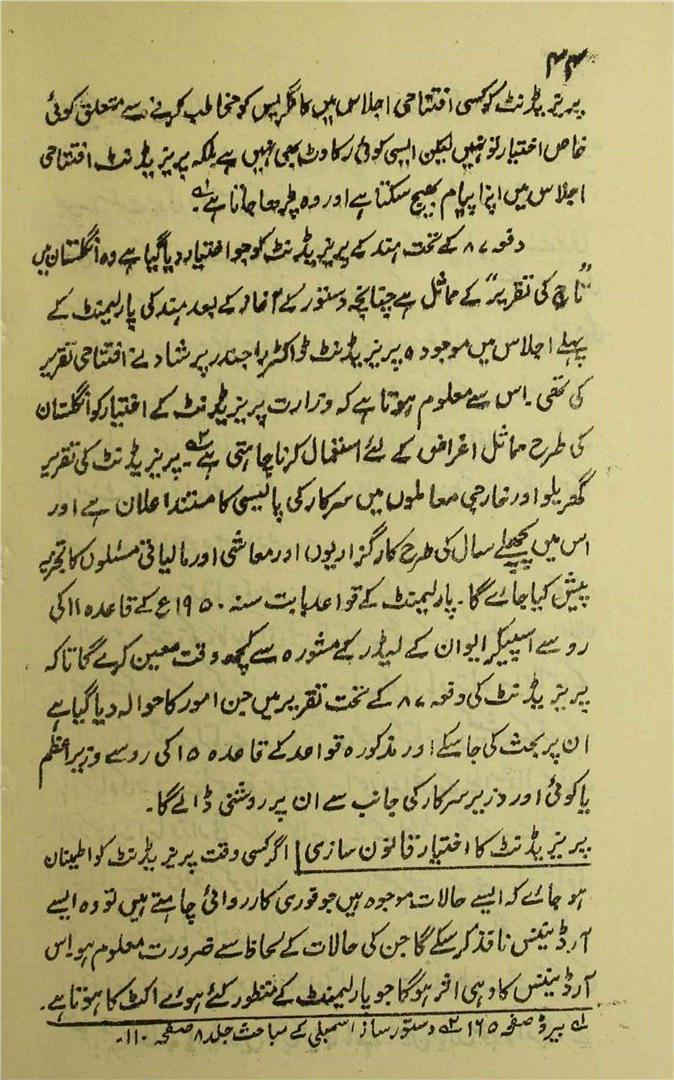 ۴۴
پریزیڈنٹ کو کسی افتتاحی اجلاس میں کانگریس کو مخاطب کرنے سے متعلق کوئی
خاص اختیار تو نہیں لیکن ایسی کوئی رکاوٹ بھی نہیں ہے بلکہ پریزیڈنٹ افتتاحی
اجلاس میں اپنا پیام بھیج سکتا ہے اور وہ پڑھا جاتا ہے۱؎۔
دفعہ ۸۷ کے تحت ہند کے پریزیڈنٹ کو جو اختیار دیا گیا ہے وہ انگلستان میں
”تاج کی تقریر“ کے مماثل ہے چنانچہ دستور کے آغاز کے بعد ہند کی پارلیمنٹ کے
پہلے اجلاس میں موجودہ پریزیڈنٹ ڈاکٹر راجندر پرشاد نے افتتاحی تقریر
کی تھی۔ اس سے معلوم ہوتا ہے کہ وزارت پریزیڈنٹ کے اختیار کو انگلستان
کی طرح مماثل اغراض کے لئے استعمال کرنا چاہتی ہے۲؎۔ پریزیڈنٹ کی تقریر
گھریلو اور خارجی معاملوں میں سرکار کی پالیسی کا مستند اعلان ہے اور
اس میں پچھلے سال کی طرح کارگزاریوں اور معاشی اور مالیاتی مسئلوں کا تجزیہ
پیش کیا جائے گا۔ پارلیمنٹ کے قواعد بابت سنہ ۱۹۵۰ع کے قاعدہ ۱۱ کی
رو سے اسپیکر ایوان کے لیڈر کے مشورہ سے کچھ وقت معین کرے گا تاکہ
پریزیڈنٹ کی دفعہ ۸۷ کے تحت تقریر میں جن امور کا حوالہ دیا گیا ہے
ان پر بحث کی جاسکے اور مذکورہ قواعد کے قاعدہ ۱۵ کی رو سے وزیر اعظم
یا کوئی اور وزیر سرکار کی جانب سے ان پر روشنی ڈالے گا۔
پریزیڈنٹ کا اختیار قانون سازی | اگر کسی وقت پریزیڈنٹ کو اطمینان
ہو جائے کہ ایسے حالات موجود ہیں جو فوری کارروائی چاہتے ہیں تو وہ ایسے
آرڈیننس نافذ کرسکے گا جن کی حالات کے لحاظ سے ضرورت معلوم ہو۔ اس
آرڈیننس کا وہی اثر ہوگا جو پارلیمنٹ کے منظور کئے ہوئے اکٹ کا ہوتا ہے۔
۱؎ بیرڈ صفحہ ۱۶۵ ۲؎ دستور ساز اسمبلی کے مباحث جلد ۸ صفحہ ۱۱۰۔